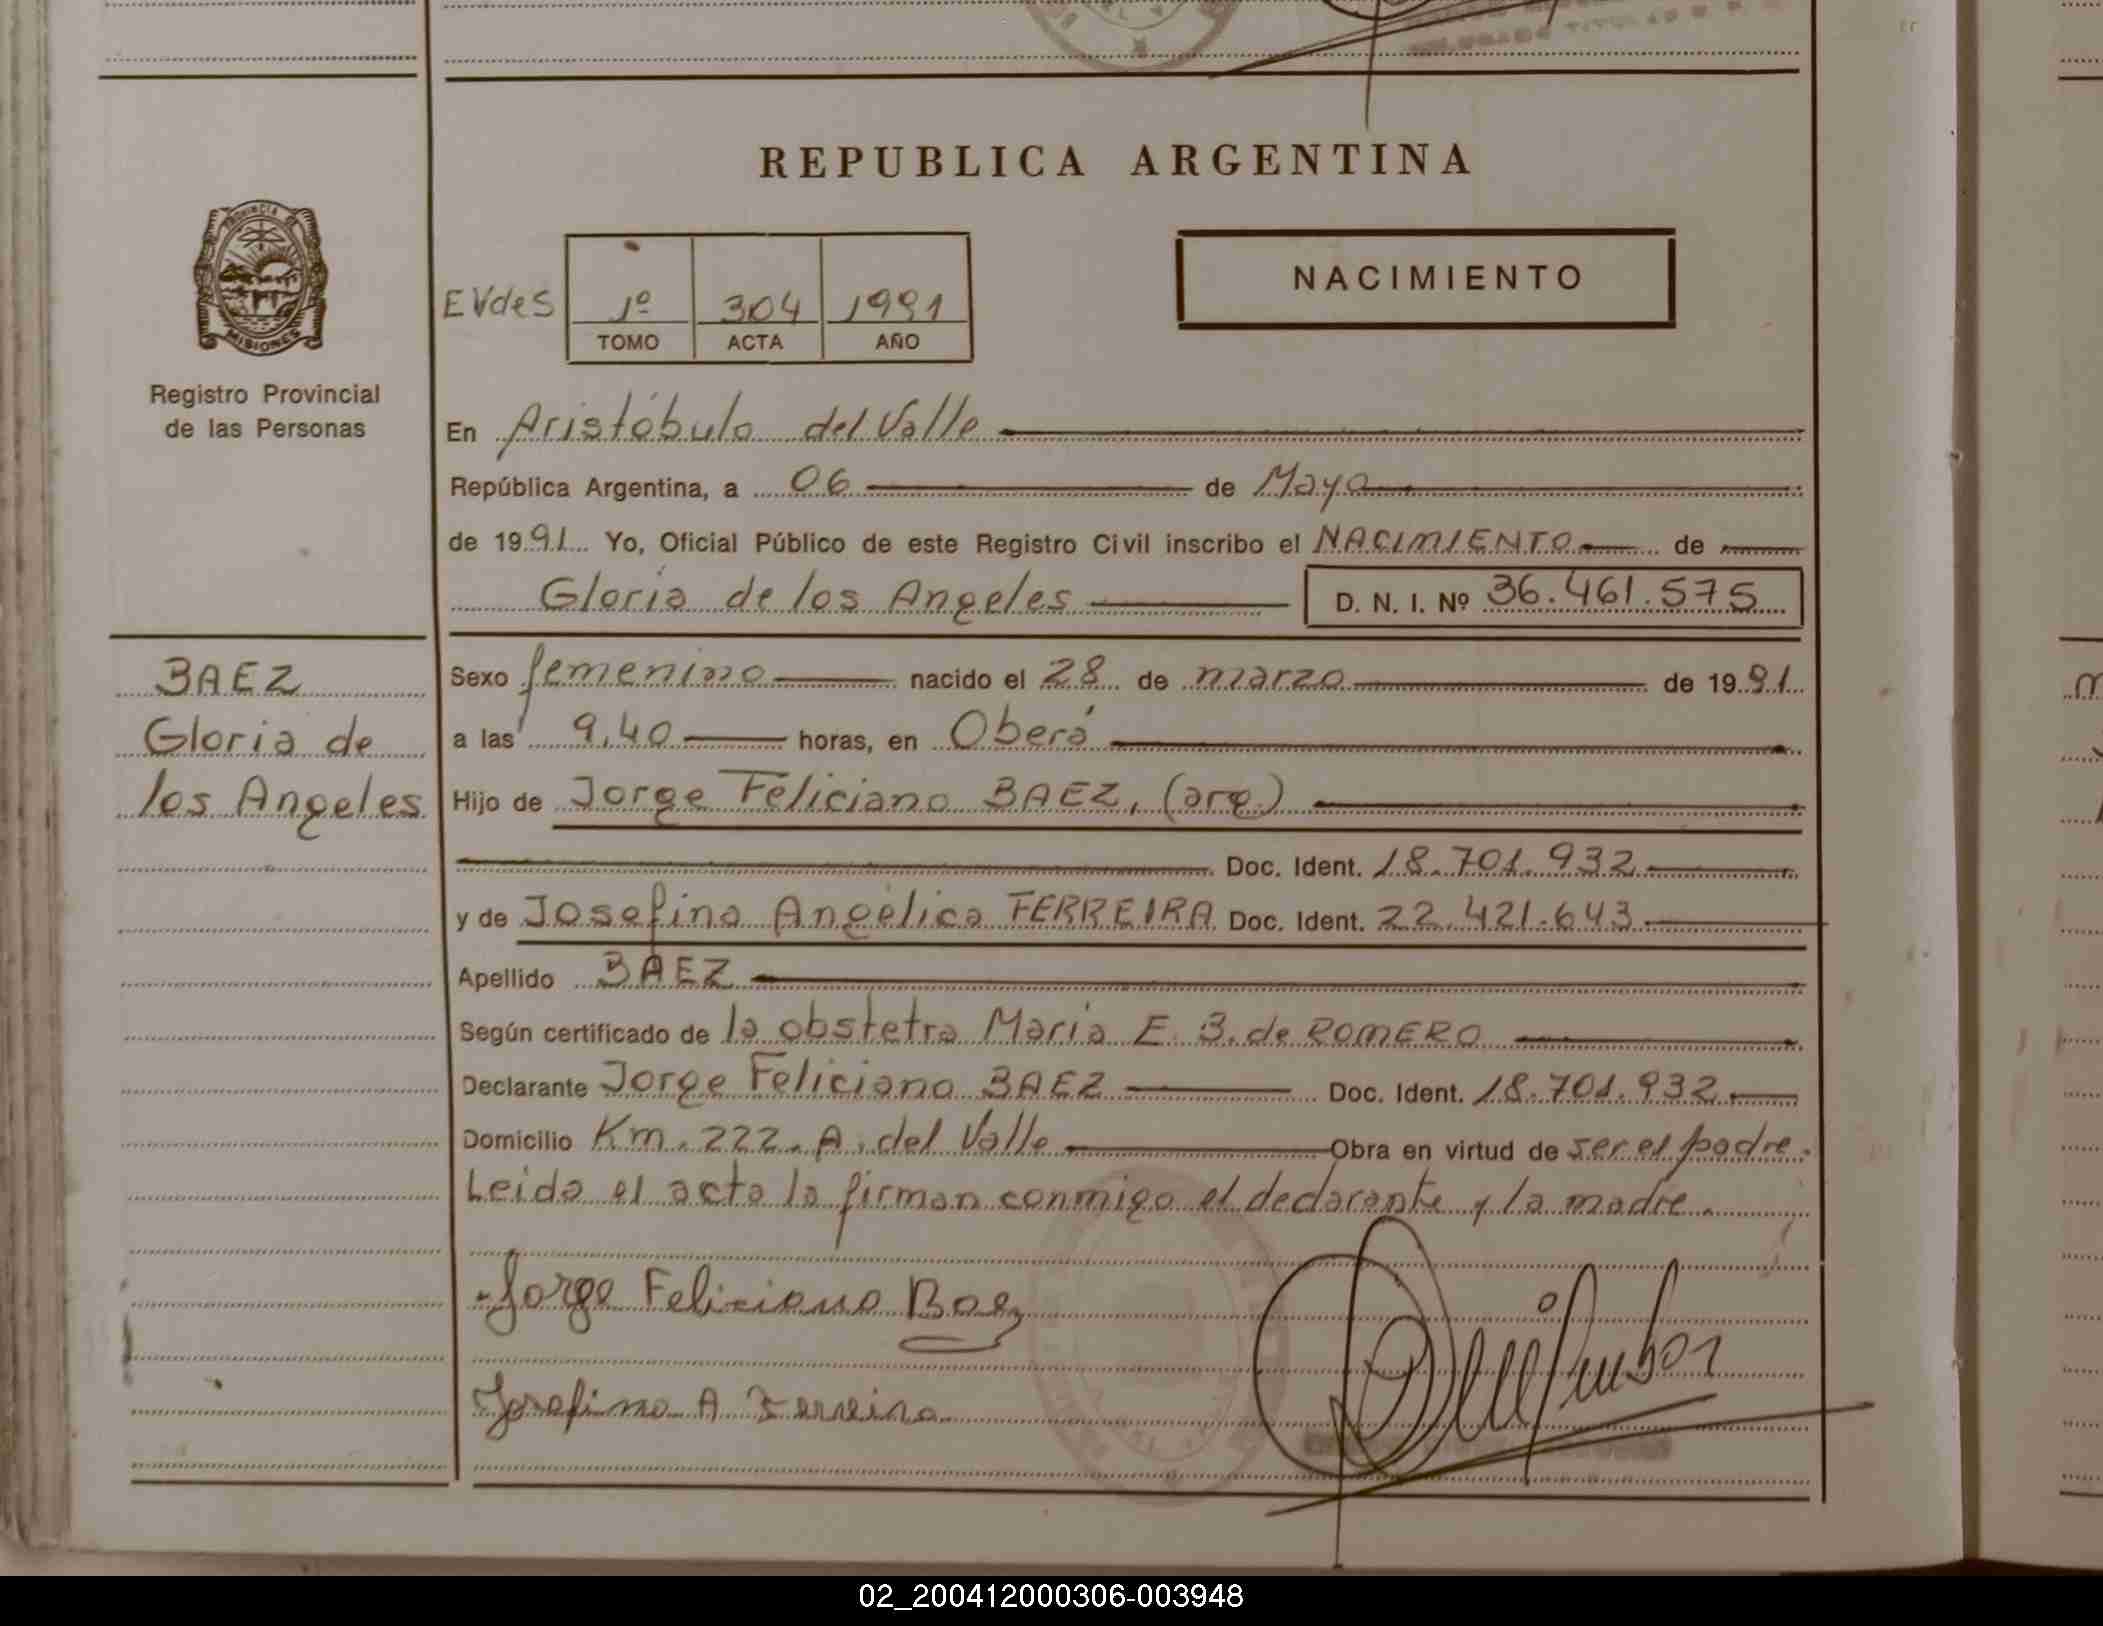 REPUBLICA ARGENTINA
PROVINCIA DE
MISIONES
Registro Provincial
de las Personas
EVdes 1º 304 1991
TOMO ACTA AÑO
NACIMIENTO
En Aristóbulo del Valle
República Argentina, a 06 de Mayo
de 1991 Yo, Oficial Público de este Registro Civil inscribo el NACIMIENTO de
Gloria de los Angeles D. N. I. Nº 36.461.575
BAEZ
Gloria de
los Angeles
Sexo femenino nacido el 28 de marzo de 1991
a las 9,40 horas, en Oberá
Hijo de Jorge Feliciano BAEZ, (arg.)
Doc. Ident. 18.701.932
y de Josefina Angélica FERREIRA Doc. Ident. 22.421.643
Apellido BAEZ
Según certificado de la obstetra Maria E. B. de ROMERO
Declarante Jorge Feliciano BAEZ Doc. Ident. 18.701.932
Domicilio Km. 222. A. del Valle Obra en virtud de ser el padre.
Leida el acta la firman conmigo el declarante y la madre.
Jorge Feliciano Baez
Josefina A Ferreira
02_200412000306-003948